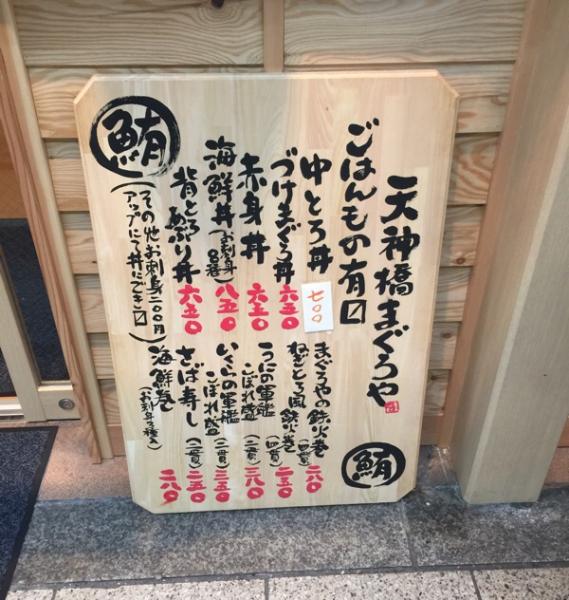 天神橋まぐろや
ごはんもの有〼
中とろ丼 七〇〇
づけまぐろ丼 六五〇
赤身丼 六五〇
海鮮丼（お刺身8種） 八五〇
背とろ炙り丼 六五〇
（その他お刺身二〇〇円
アップにて丼にでき〼）
まぐろやの鉄火巻（四貫） 二六〇
ねぎとろ風鉄火巻（四貫） 二三〇
うにの軍艦こぼれ盛（二貫） 三八〇
いくらの軍艦こぼれ盛（二貫） 三五〇
さば寿し（二貫） 二五〇
海鮮巻（お刺身3種入） 二八〇
鮪
鮪